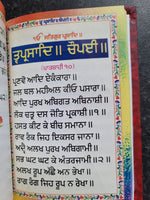 ੴ ਸਤਿਗੁਰ ਪ੍ਰਸਾਦਿ
ਤ੍ਵਪ੍ਰਸਾਦਿ॥ ਚੌਪਈ॥
(ਪਾਤਸ਼ਾਹੀ ੧੦)
ਪ੍ਰਣਵੋ ਆਦਿ ਏਕੰਕਾਰਾ॥
ਜਲ ਥਲ ਮਹੀਅਲ ਕੀਓ ਪਸਾਰਾ॥
ਆਦਿ ਪੁਰਖ ਅਬਿਗਤ ਅਬਿਨਾਸੀ॥
ਲੋਕ ਚਤ੍ਰ ਦਸ ਜੋਤਿ ਪ੍ਰਕਾਸੀ॥੧॥
ਹਸਤ ਕੀਟ ਕੇ ਬੀਚ ਸਮਾਨਾ॥
ਰਾਵ ਰੰਕ ਜਿਹ ਇਕਸਰ ਜਾਨਾ॥
ਅਦ੍ਵੈ ਅਲਖ ਪੁਰਖ ਸੁਗਾਮੀ॥
ਸਭ ਘਟ ਘਟ ਕੇ ਅੰਤਰਜਾਮੀ॥੨॥
ਅਲਖ ਰੂਪ ਅਛੈ ਅਨ ਭੇਖਾ॥
ਰਾਗ ਰੰਗ ਜਿਹ ਰੂਪ ਨ ਰੇਖਾ॥